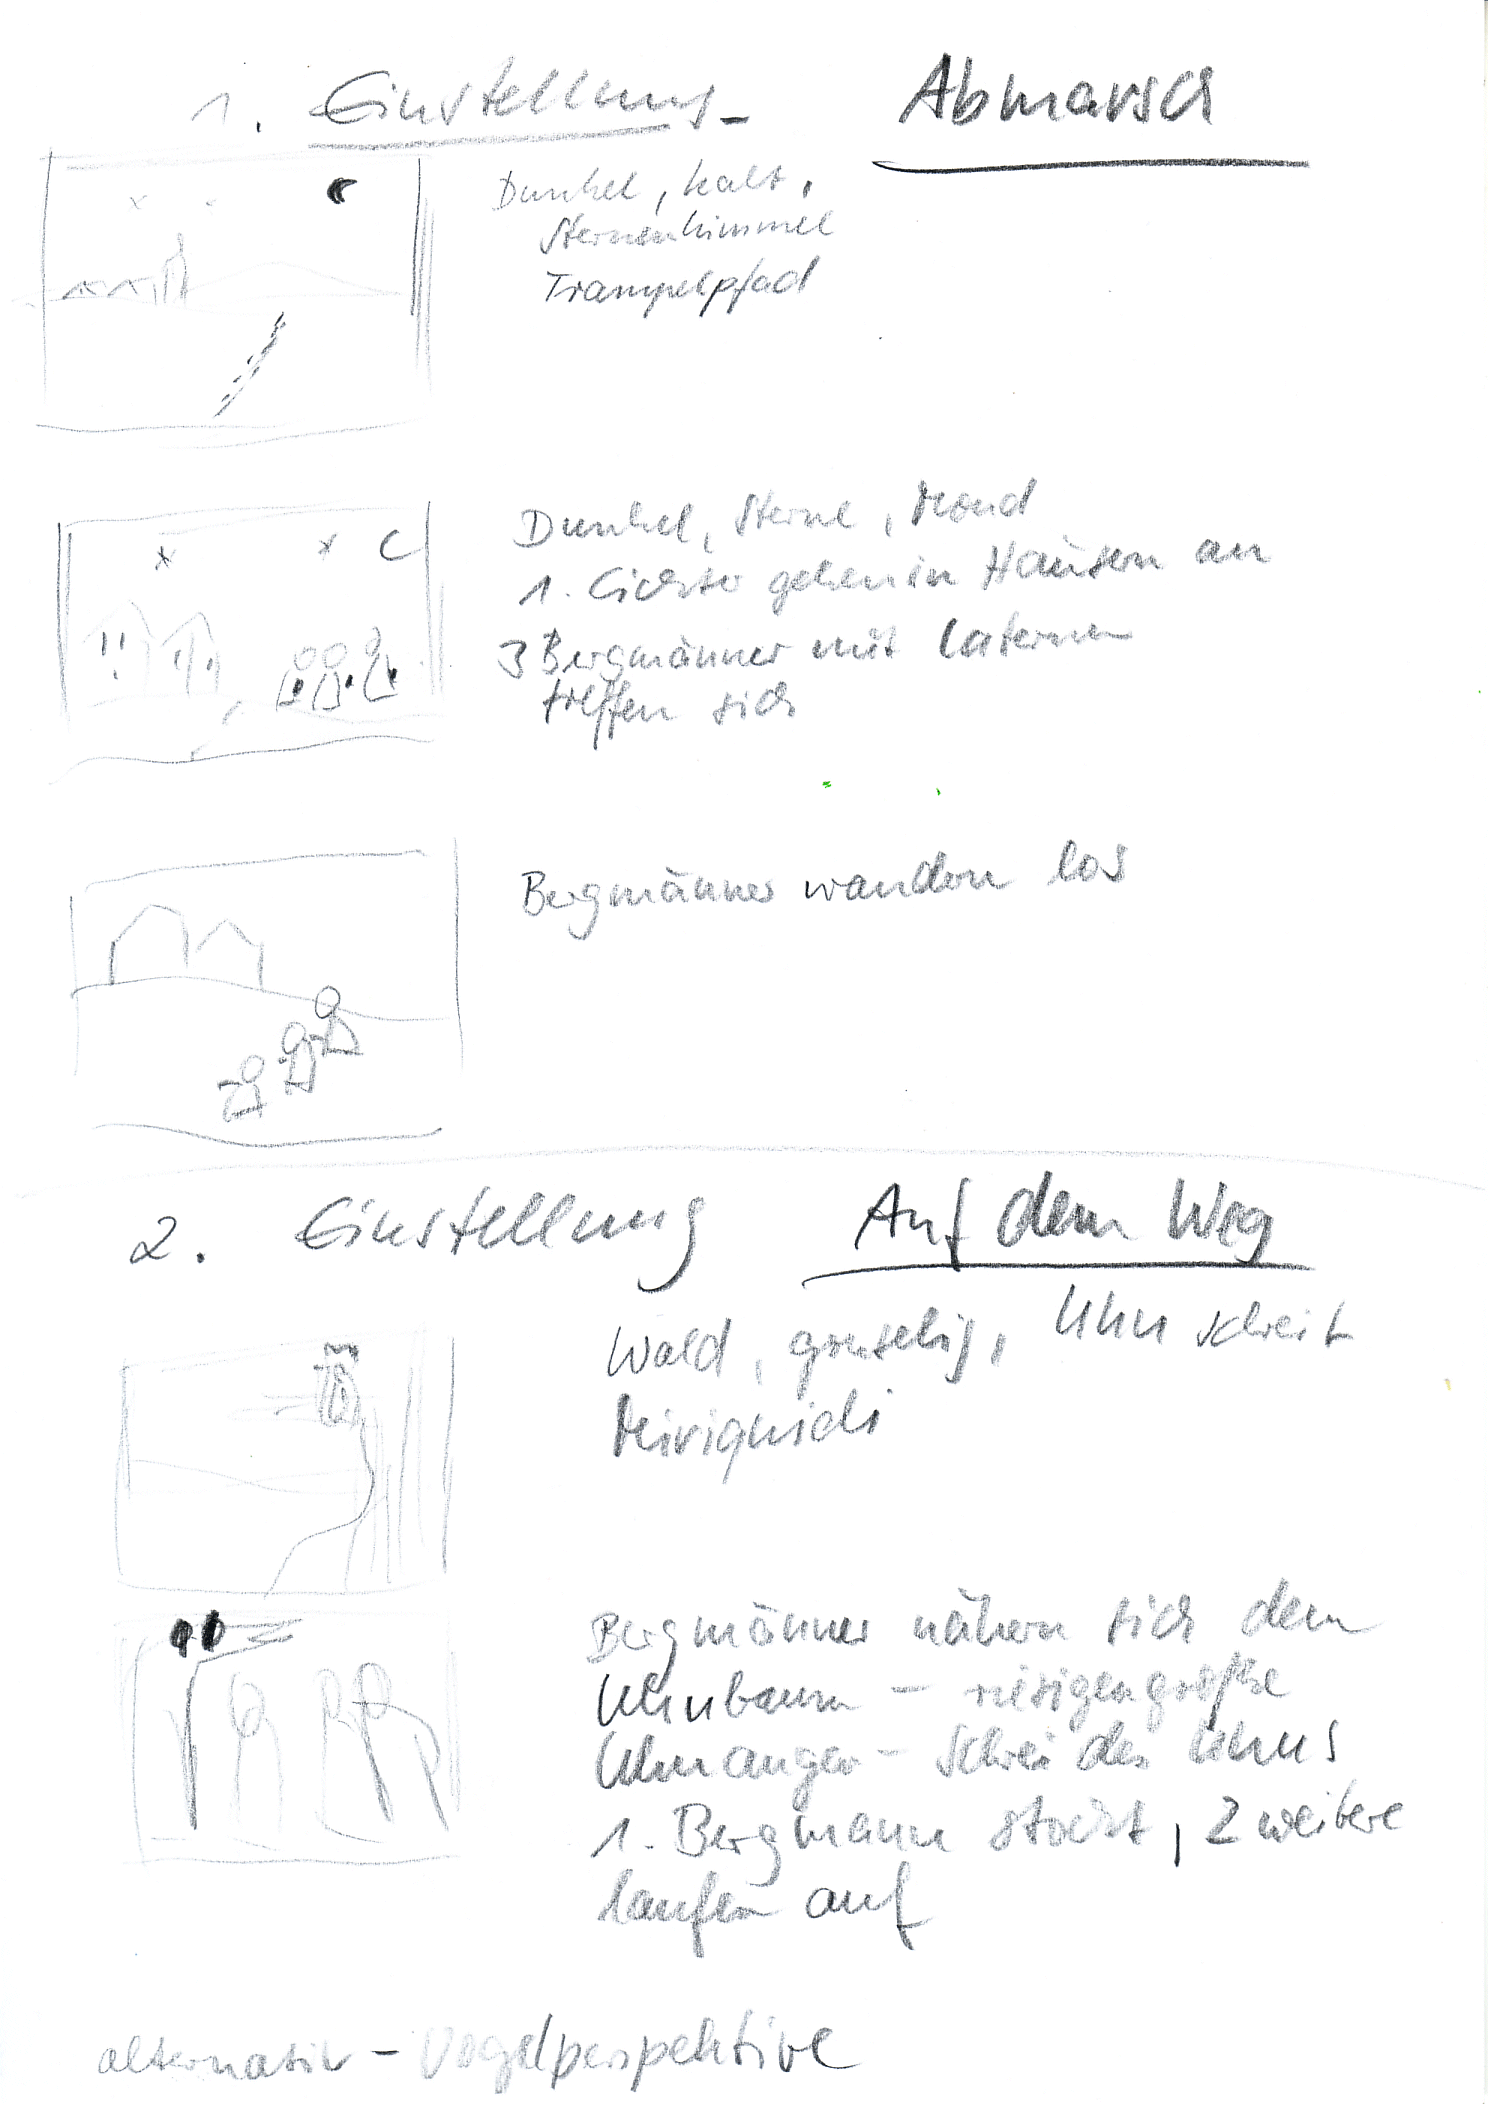 1. Einstellung Abmarsch
Dunkel, kalt,
Sternenhimmel
Trampelpfad
Dunkel, Sterne, Mond
1. Lichter gehen in Häusern an
3 Bergmänner mit Laternen
treffen sich
Bergmänner wandern los
2. Einstellung Auf dem Weg
Wald, gruselig, Uhu schreit
Miriquidi
Bergmänner nähern sich dem
Uhubaum – riesigengroße
Uhuaugen – Schrei des Uhus
1. Bergmann stockt, 2 weitere
laufen auf
alternativ – Vogelperspektive